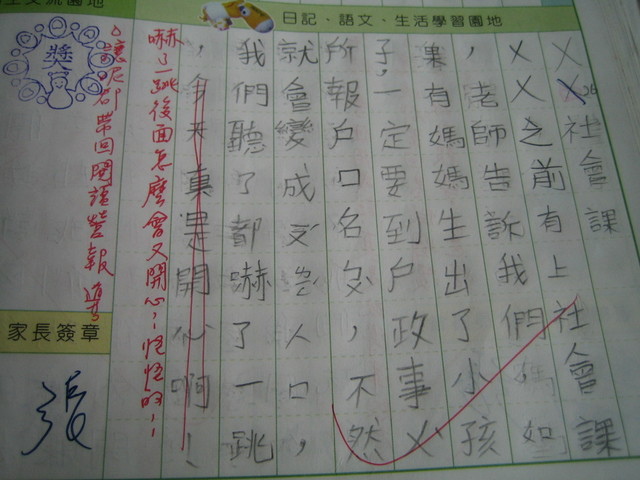 日記、語文、生活學習園地
獎
ㄨㄨ社會課
ㄨㄨ之前有上社會課
，老師告說我們如
果有媽媽生出了小孩
子，一定要到戶政事ㄨˋ
所報戶口名，不然
就會變成人口，
我們聽了都嚇了一跳
，真是開心啊！
嚇了一跳後面怎麼會又開心！怪怪的！
帶回閱讀營報導
家長簽章
張